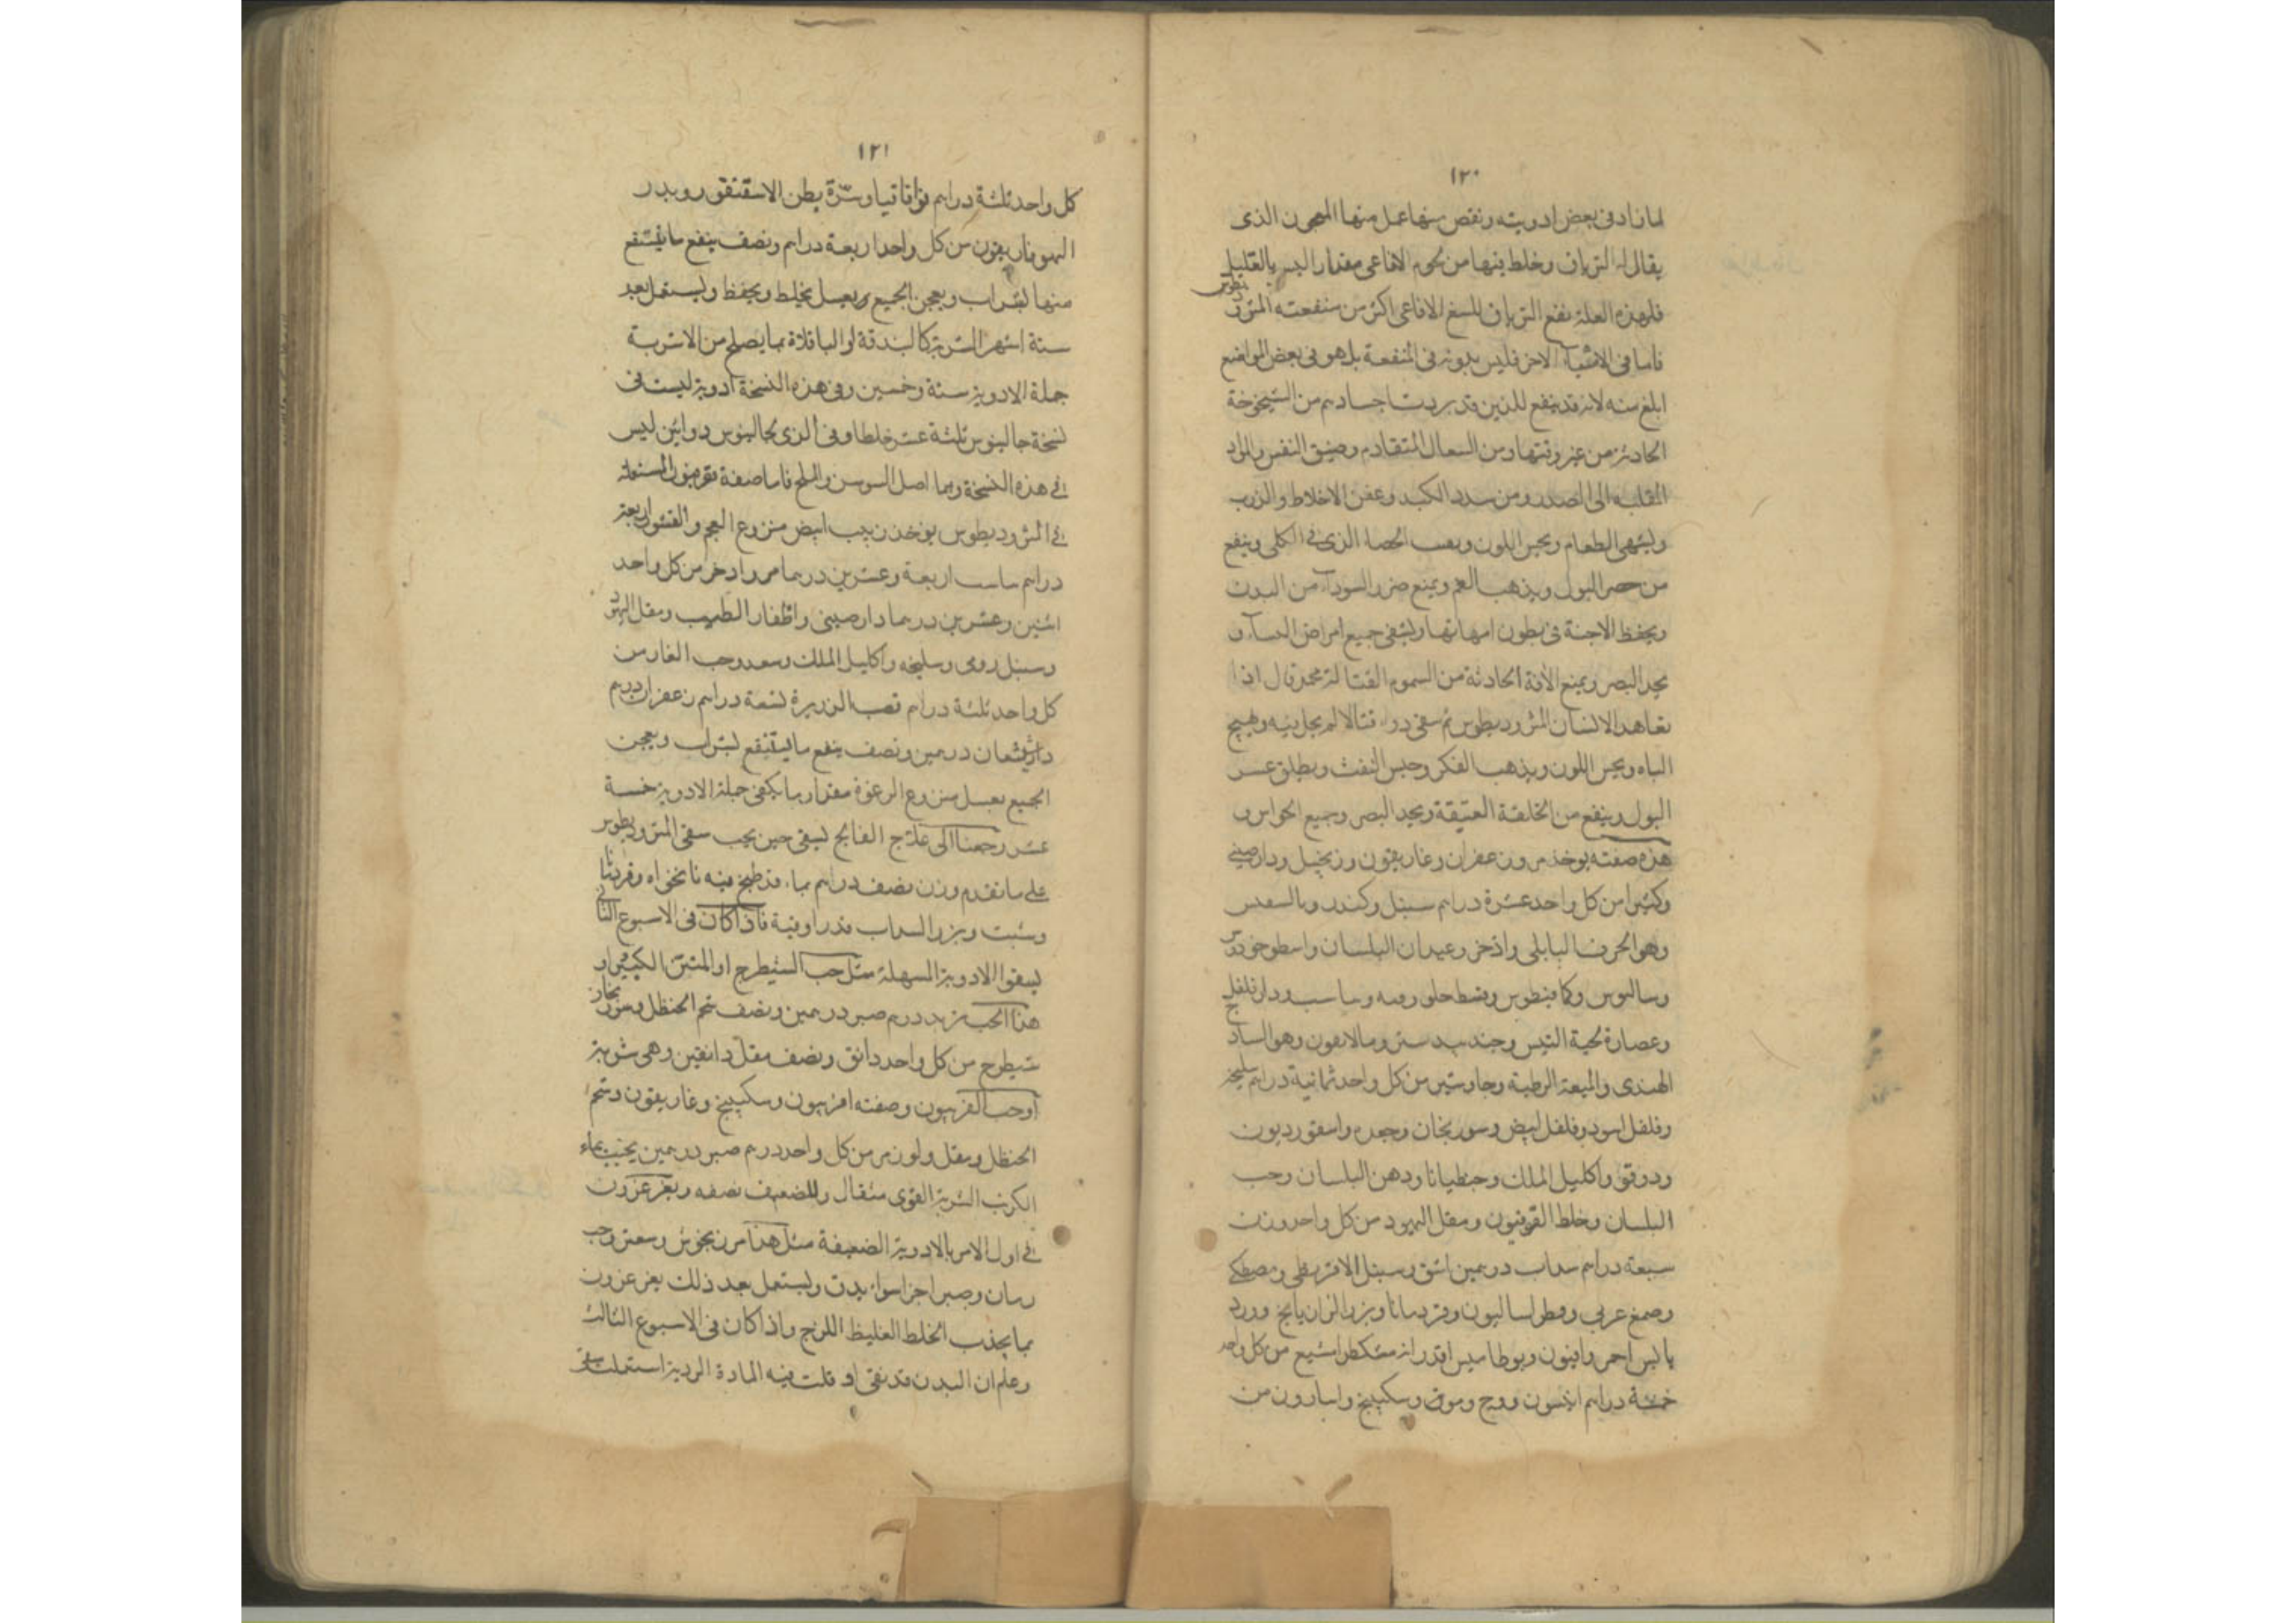 ١٢٠
لما زاد فى بعض ادويته ونقص منها عمل منها المعجون الذى
يقال له الترياق وخلط فيها من لحوم الافاعى مقدار اليس بالقليل
فلهذه العلة نفع الترياق للسع الافاعى اكثر من منفعته المثرود
يطوس
فاما فى الاشياء الاخر فليس بدونه فى المنفعة بل هو فى بعض المواضع
ابلغ منه لانه قد ينفع للذين قد بردت اجسادهم من الشيخوخة
الحادثة من غير وقتها ومن السعال المتقادم وضيق النفس والمواد
الى الصدر ومن سدد الكبد وعفن الاخلاط والذرب
ويشهى الطعام ويحسن اللون ويفتت الحصاة الذى فى الكلى وينفع
من حصر البول ويذهب الغم ويمنع ضرر السوداء من البدن
ويحفظ الاجنة فى بطون امهاتها ويشفى جميع امراض النساء و
يحد البصر ويمنع الآفة الحادثة من السموم القتالة محمد قال اذا
تعاهد الانسان المثروديطوس ثم سقى دواء قتالا لم يحل فيه ويهيج
الباه ويحسن اللون ويذهب الفكر وحبس النفث ويطلق عسر
البول وينفع من الخلفة العتيقة ويحد البصر وجميع الحواس و
هذه صفته يوخذ مر وزعفران وغاريقون وزنجبيل ودارصينى
وكثيرا من كل واحد عشرة دراهم سنبل وكندر
وهو الحرف البابلى واذخر وعيدان البلسان واسطوخودوس
وكمافيطوس وقسط حلو ودارفلفل
وعصارة لحية التيس وجند بيدستر وهو الساذج
الهندى والميعة الرطبة وجاوشير من كل واحد ثمانية دراهم سليخه
وفلفل اسود وفلفل ابيض وسورنجان وجعده واسقورديون
ودوقو واكليل الملك وجنطيانا ودهن البلسان وحب
البلسان وخلط القوفيون ومقل اليهود من كل واحد وزن
سبعة دراهم سداب درهمين اشق وسنبل الاقريطى ومصطكى
وصمغ عربى وفطراساليون وقردمانا وبزر الرازيانج وورد
يابس احمر وافيون من كل واحد
خمسة دراهم انيسون ووج وموو وسكبينج واسارون من
١٢١
كل واحد ثلثة دراهم فو اقاقيا وسرة بطن الاسقنقور وبذر
الهيوفاريقون من كل واحد اربعة دراهم ونصف ينقع ما ينتقع
منها بشراب ويعجن الجميع بعسل يخلط ويحفظ ويستعمل بعد
ستة اشهر الشربة كالبندقة او الباقلاة بما يصلح من الاشربة
جملة الادوية ستة وخمسين وفى هذه النسخة ادوية ليست فى
نسخة جالينوس ثلثة عشر خلطا وفى الذى لجالينوس دوائين ليس
فى هذه النسخة وهما اصل السوسن والملح فاما صفة قوفيون المستعملة
فى المثروديطوس يوخذ زبيب ابيض منزوع العجم والقشور اربعة
دراهم اربعة وعشرين درهما مر واذخر من كل واحد
اثنين وعشرين درهما دارصينى واظفار الطيب ومقل اليهود
وسنبل رومى وسليخه واكليل الملك وسعد وحب الغار من
كل واحد ثلثة دراهم قصب الذريرة تسعة دراهم زعفران درهم
دارشيشعان درهمين ونصف ينقع ما ينتقع بشراب ويعجن
الجميع بعسل منزوع الرغوة مقدار ما يكفى جملة الادوية خمسة
عشر رجعنا الى علاج الفالج ليسقى حين يجب سقى المثروديطوس
على ما تقدم وزن نصف درهم بماء قد طبخ فيه نانخواه وقردمانا
وشبت وبزر السداب قدر اوقية فاذا كان فى الاسبوع الثانى
ليسقوا الادوية المسهلة مثل حب الشيطرج او المنتن الكبير او
هذا الحب تربد درهم صبر درهمين ونصف شحم الحنظل وسورنجان
شيطرج من كل واحد دانق ونصف مقل دانقين وهى شربة
او حب الفربيون وصفته افربيون وسكبينج وغاريقون وشحم
الحنظل ومقل من كل واحد درهم صبر درهمين يحبب بماء
الكرنب الشربة للقوى مثقال وللضعيف نصفه ويغرغرون
فى اول الامر بالادوية الضعيفة مثل هذا مرزنجوش وسعتر وحب
رمان وصبر اجزا سواء يدق ويستعمل بعد ذلك يغرغرون
بما يجذب الخلط الغليظ اللزج واذا كان فى الاسبوع الثالث
وعلم ان البدن قد نقى او قلت فيه المادة الردية استعملت